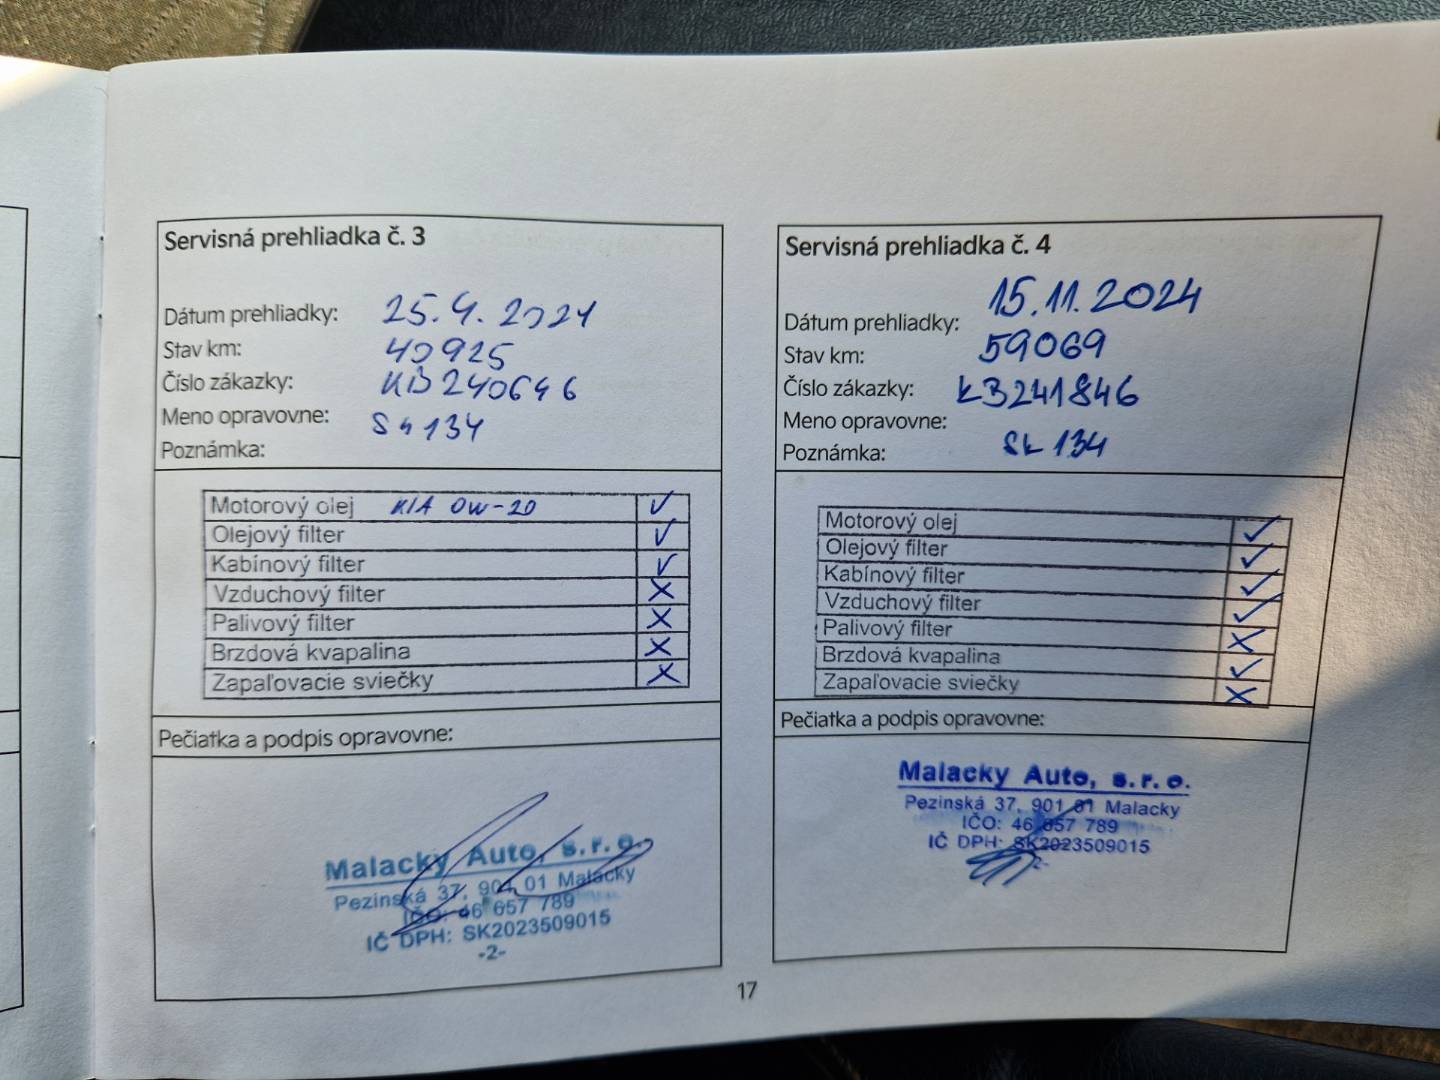 Servisná prehliadka č. 3
Dátum prehliadky: 25.4.2024
Stav km: 40925
Číslo zákazky: KB240646
Meno opravovne: SK134
Poznámka:
Motorový olej KIA 0W-20 ✓
Olejový filter ✓
Kabínový filter ✓
Vzduchový filter X
Palivový filter X
Brzdová kvapalina X
Zapaľovacie sviečky X
Pečiatka a podpis opravovne:
Malacky Auto, s.r.o.
Pezinská 37, 901 01 Malacky
IČO: 46 657 789
IČ DPH: SK2023509015
-2-
Servisná prehliadka č. 4
Dátum prehliadky: 15.11.2024
Stav km: 59069
Číslo zákazky: KB241846
Meno opravovne:
Poznámka: SK 134
Motorový olej ✓
Olejový filter ✓
Kabínový filter ✓
Vzduchový filter ✓
Palivový filter X
Brzdová kvapalina ✓
Zapaľovacie sviečky X
Pečiatka a podpis opravovne:
Malacky Auto, s.r.o.
Pezinská 37, 901 01 Malacky
IČO: 46 657 789
IČ DPH: SK2023509015
-2-
17